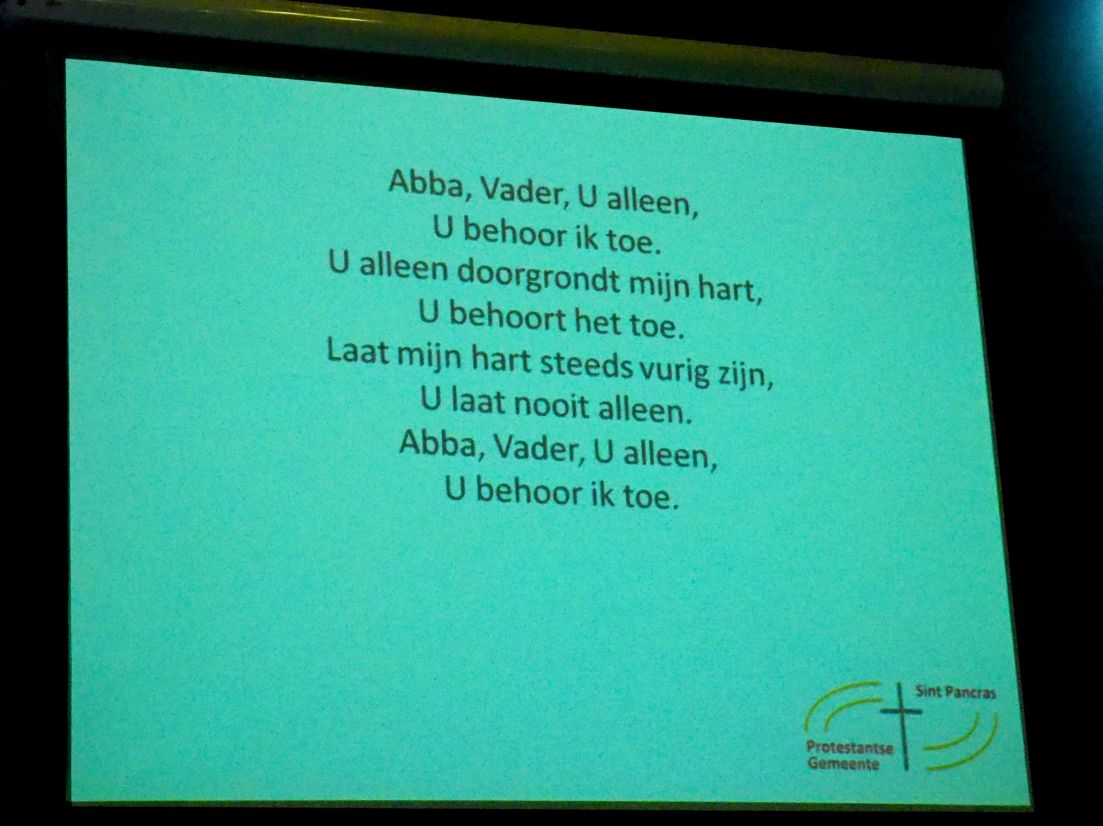 Abba, Vader, U alleen,
U behoor ik toe.
U alleen doorgrondt mijn hart,
U behoort het toe.
Laat mijn hart steeds vurig zijn,
U laat nooit alleen.
Abba, Vader, U alleen,
U behoor ik toe.
Sint Pancras
Protestantse
Gemeente